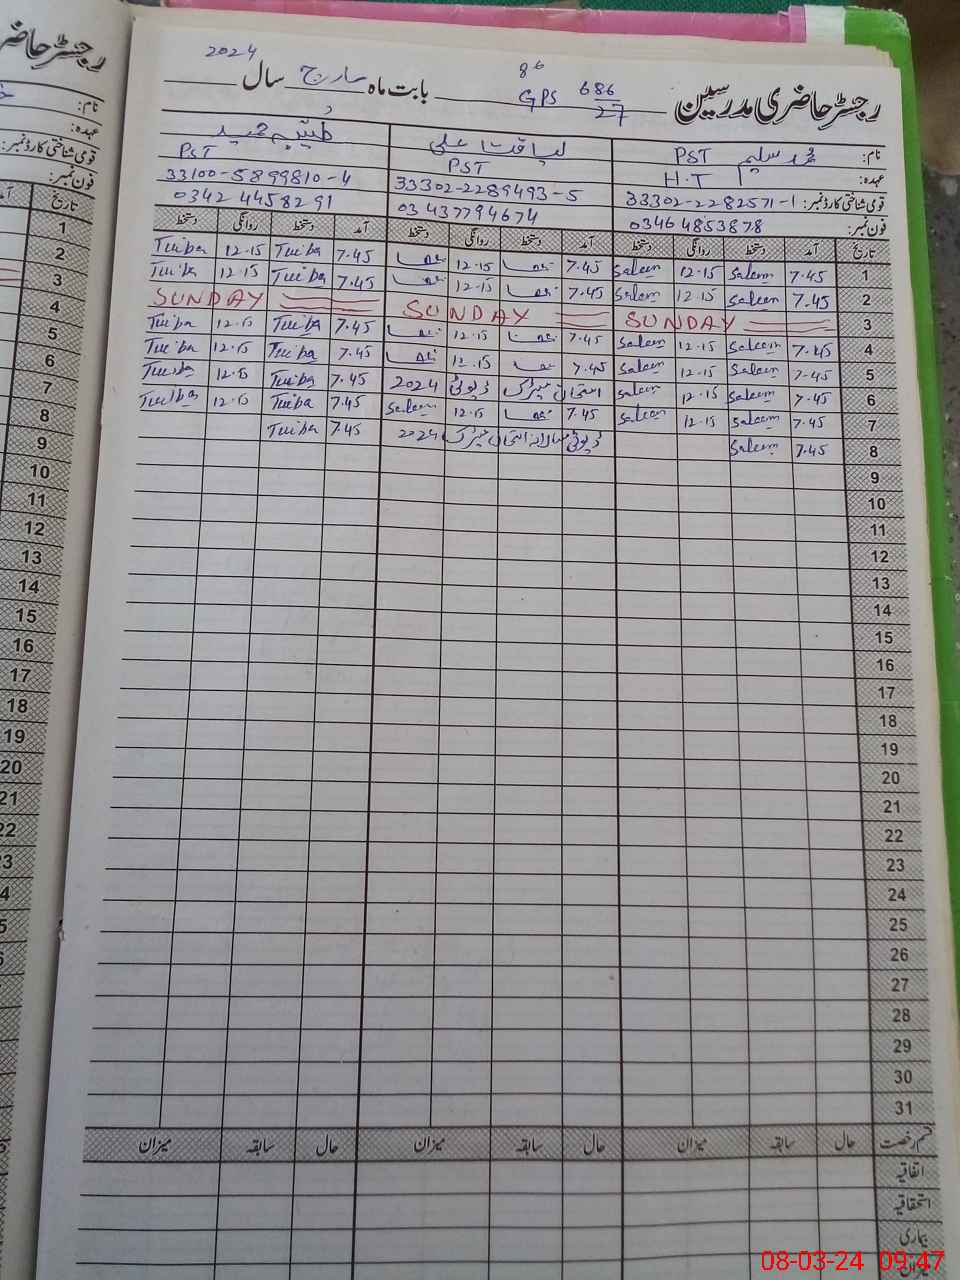 رجسٹر حاضری مدرسین GPS 686/27 بابت ماہ مارچ سال 2024
نام: محمد سلیم PST
عہدہ: H.T
قومی شناختی کارڈ نمبر: 33302-2282571-1
فون نمبر: 03464853878
لیاقت علی
PST
33302-2289493-5
03437794674
طیبہ حمید
PST
33100-5899810-4
03424458291
تاریخ آمد دستخط روانگی دستخط آمد دستخط روانگی دستخط آمد دستخط روانگی دستخط
1 7.45 Saleem 12.15 Saleem 7.45 12.15 7.45 Tuiba 12.15 Tuiba
2 7.45 Saleem 12.15 Saleem 7.45 12.15 7.45 Tuiba 12.15 Tuiba
3 SUNDAY SUNDAY SUNDAY
4 7.45 Saleem 12.15 Saleem 7.45 12.15 7.45 Tuiba 12.15 Tuiba
5 7.45 Saleem 12.15 Saleem 7.45 12.15 7.45 Tuiba 12.15 Tuiba
6 7.45 Saleem 12.15 Saleem امتحان میٹرک ڈیوٹی 2024 7.45 Tuiba 12.15 Tuiba
7 7.45 Saleem 12.15 Saleem 7.45 12.15 Saleem 7.45 Tuiba 12.15 Tuiba
8 7.45 Saleem ڈیوٹی سالانہ امتحان میٹرک 2024 7.45 Tuiba
9
10
11
12
13
14
15
16
17
18
19
20
21
22
23
24
25
26
27
28
29
30
31
قسم رخصت حال سابقہ میزان حال سابقہ میزان حال سابقہ میزان
اتفاقیہ
استحقاقیہ
بیماری
میزان
08-03-24 09:47